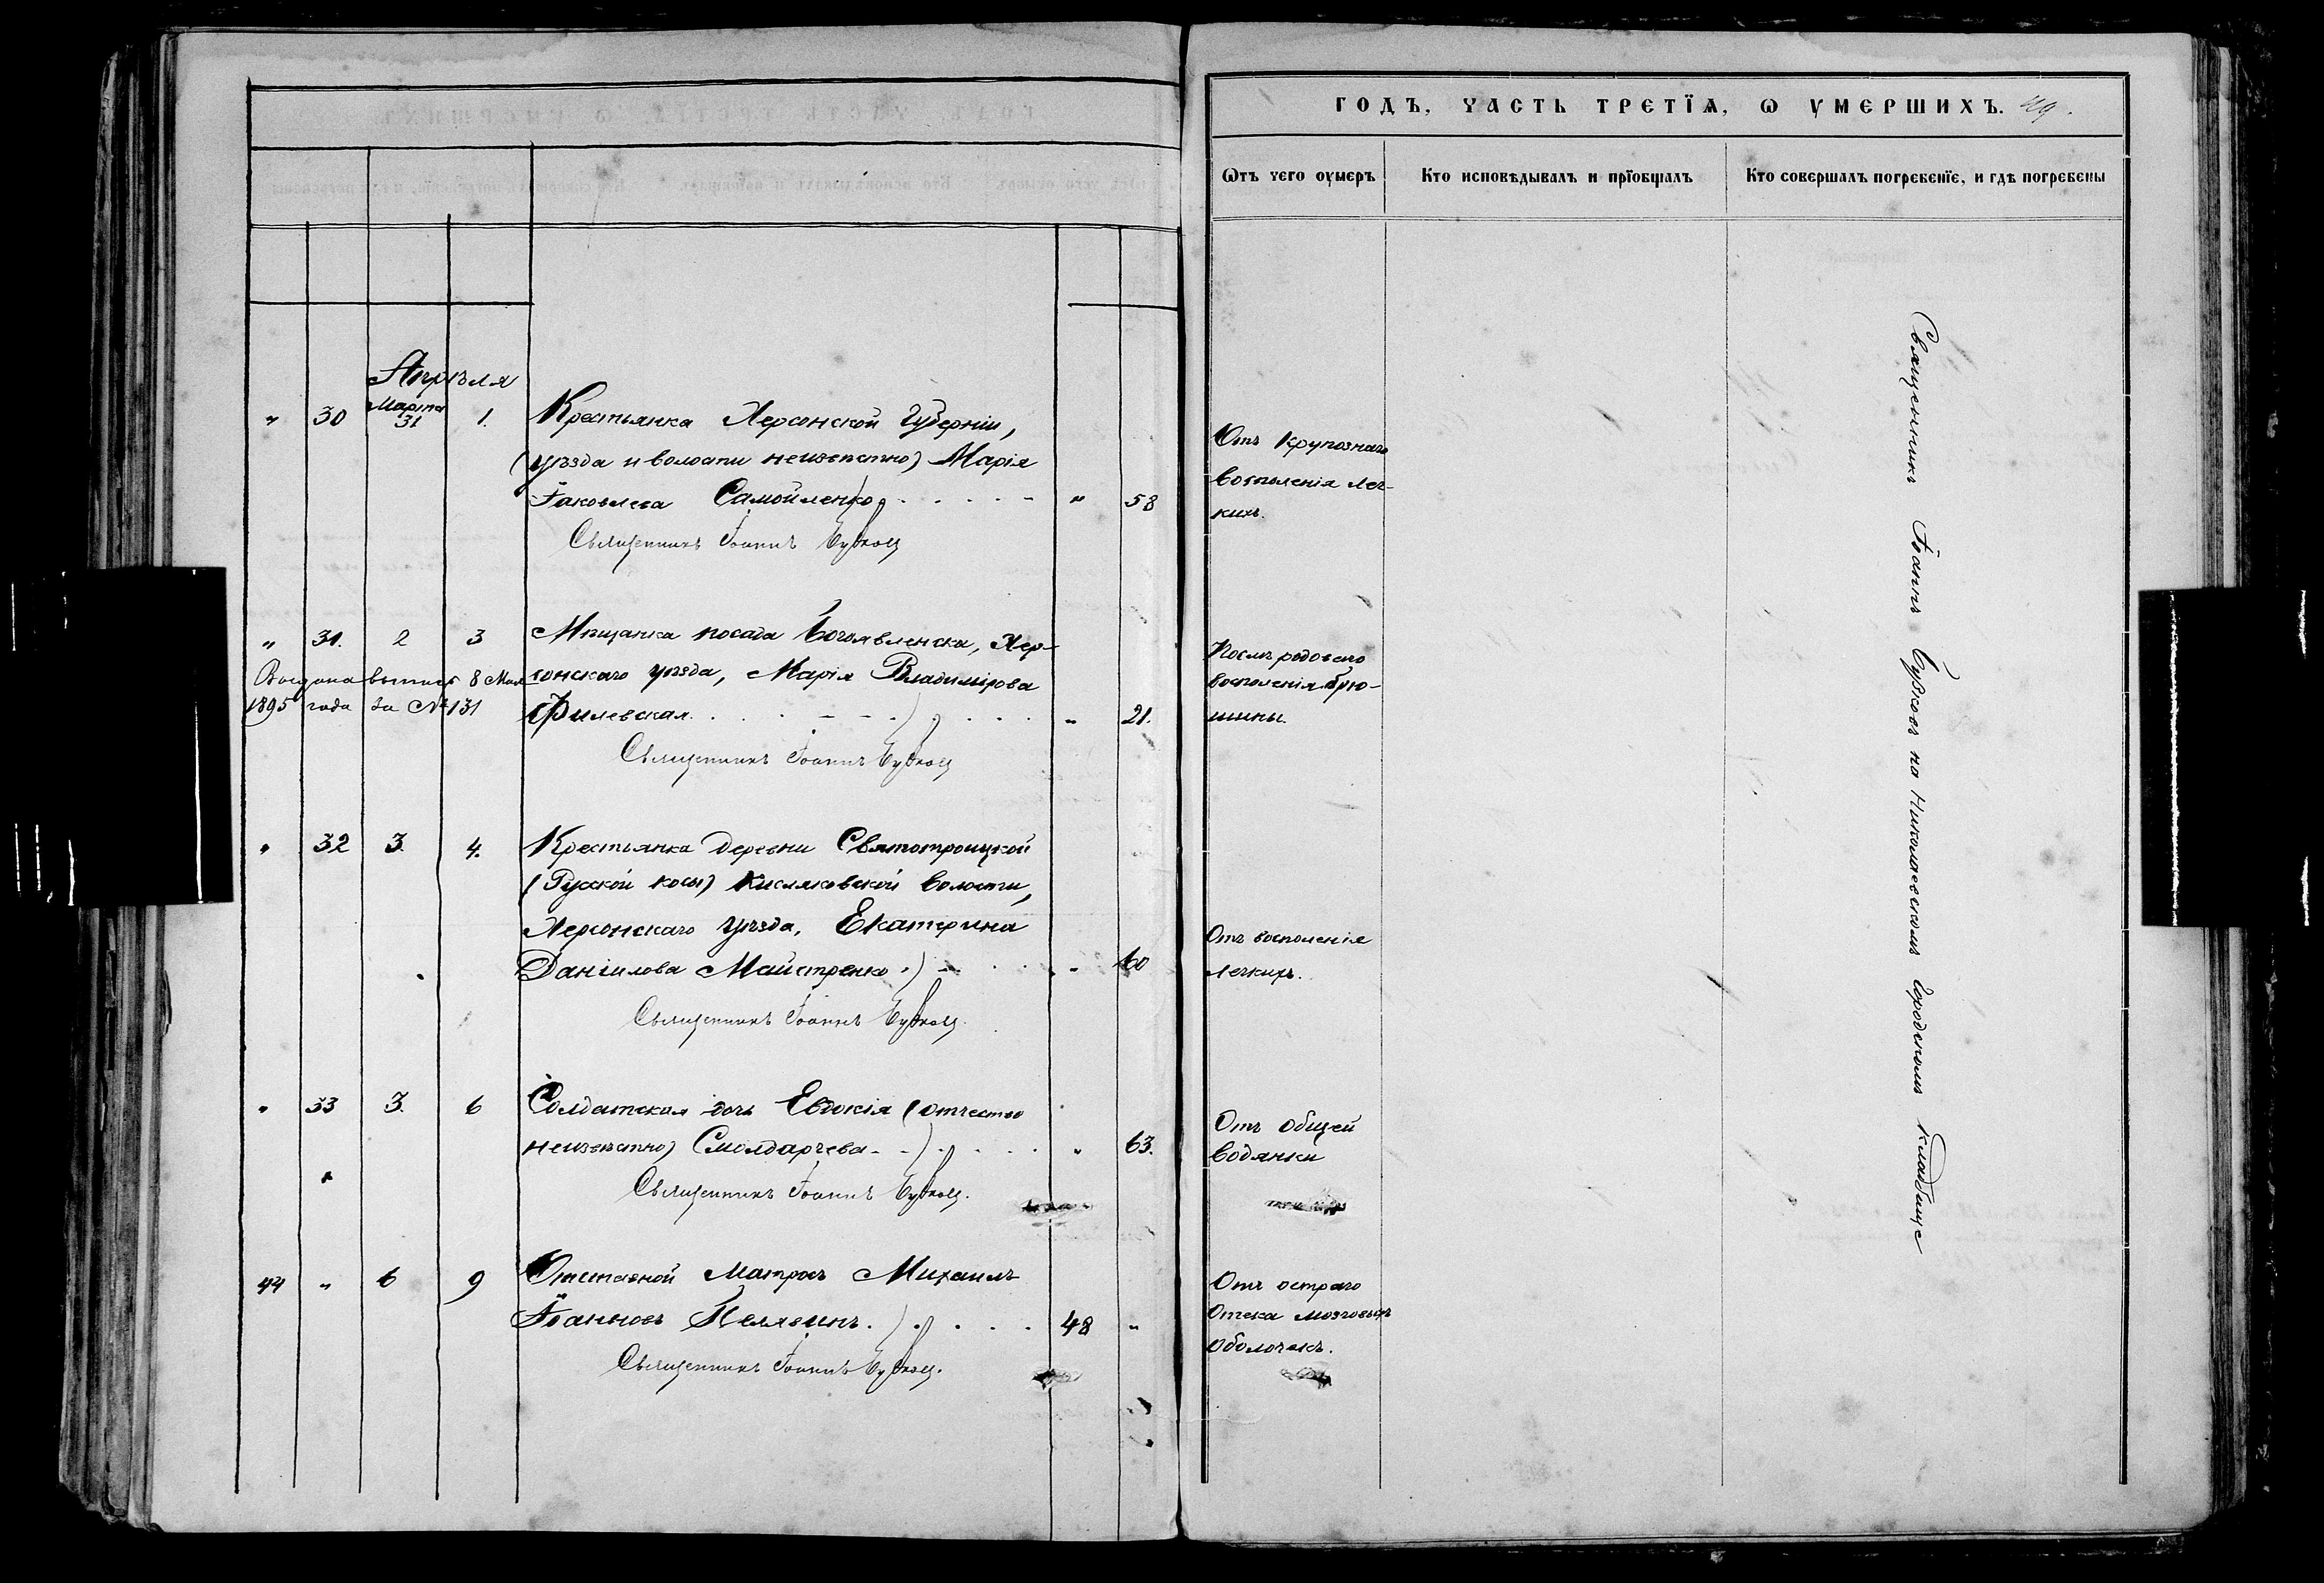 ГОДЪ, ЧАСТЬ ТРЕТЇѦ, Ѡ ѸМЕРШИХЪ. 419.
Ѿтъ чего оумеръ
Кто исповѣдывалъ и прїобщалъ
Кто совершалъ погребенїе, и гдѣ погребены
Апрѣля
" 30 Марта 31 1. Крестьянка Херсонской Губерніи,
(уѣзда и волости неизвѣстно) Марія
Іаковлева Самойленко " 58
Священникъ Іоаннъ
Отъ крупознаго
воспаленія лег-
кихъ.
" 31. 2 3 Мѣщанка посада Богоявленска, Хер-
сонскаго уѣзда, Марія Владимірова
Филевская. " 21.
Священникъ Іоаннъ
Выдана выпись 8 Мая
1895 года за № 131
Послѣродоваго
воспаленія брю-
шины.
" 32 3. 4. Крестьянка деревни Святотроицкой
(Русской косы) Кисляковской волости,
Херсонскаго уѣзда, Екатерина
Даніилова Майстренко. " 60
Священникъ Іоаннъ
Отъ воспаленія
легкихъ.
" 33 3. 6 Солдатская дочь Евдокія (отчество
неизвѣстно) Смолдарчева " 63.
Священникъ Іоаннъ
Отъ общей
водянки
44 " 6 9 Отставной Матросъ Михаилъ
Іоанновъ 48 "
Священникъ Іоаннъ
Отъ остраго
отека мозговыхъ
оболочекъ.
Священникъ Іоаннъ на Николаевскомъ городскомъ кладбище